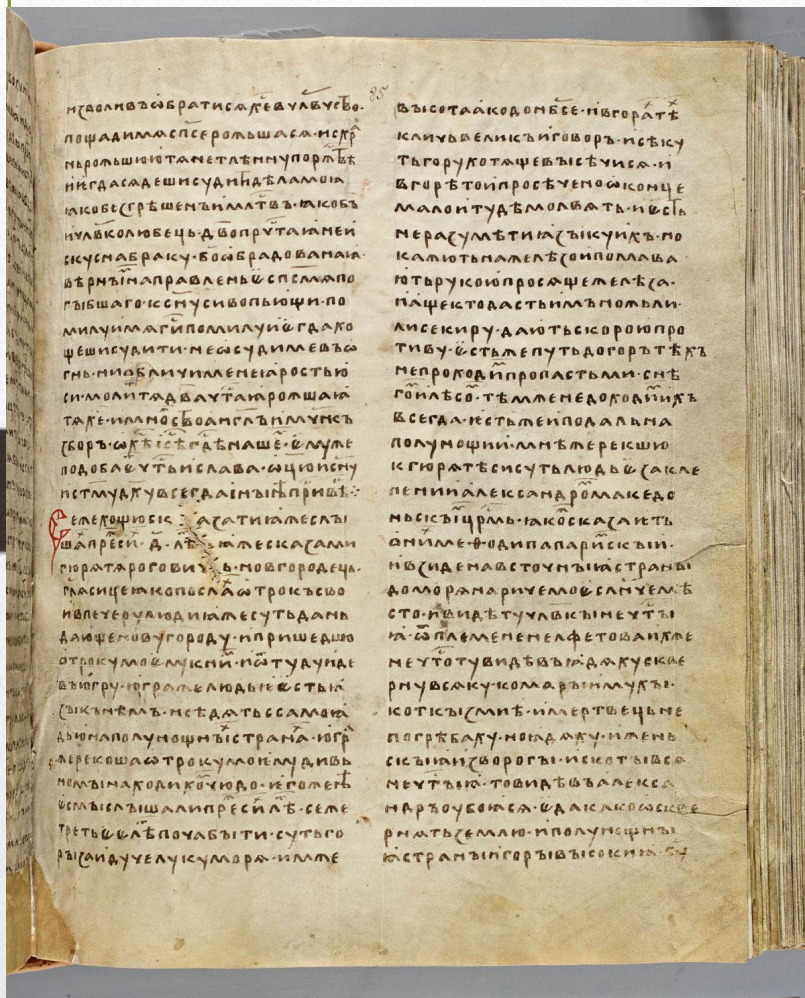 85
изволивъѡбратисѧжевчл҃вчсво·
пощадимѧсп҃серожьшасѧ·искр҇
ньрожьшюютѧнетлѣннупоржⷭ҇тв
ииегдасѧдешисудит̑дѣламоꙗ
ꙗкобезгрѣшенъимлⷭ҇твъ·ꙗкобъ
ичл҃вколюбець·дв҃опрчⷭ҇таꙗнеи
скуснабраку·бо҃ѡбрадованаꙗ
вѣрнъıнаправленьєсп҃смѧпо
гъıбшаго·ксн҃усивопьющи·по
милуимѧгиⷭ҇помилуиєгдахо
щешисудити·неѡсудимевъѡ
гнь·ниѡбличимене꙼ꙗростью
си·молиттѧдв҃ачтⷭ҇аꙗрожшаꙗ
тѧхе·имножⷭ҇твоанг҃лъимч҃нкъ
зборъ·ѡхⷭ҇ѣісѣ҃г҃дѣнаше·ємуже
подобаєчтⷭ҇ьислава·ѡц҃юисн҃у
ист҃мудх҃увсегдаінъıнѣприⷭ҇вѣ:·
Семехощюск азатиꙗжеслъı
шапрⷤеси·д҃·лⷮѣ·ꙗжесказами
гюрѧтѧроговичь·новгородець·
гл҃ѧсицеꙗкопослаⷯѡтрокъсво
ивпечеруⷧюдиꙗжесутьдань
даюшеновугороду·ипришедшю
отрокумоємукниⷨ·иѿтудуиде
въюгру·югражелюдьеєстьꙗ
зъıкънѣмъ·исѣдѧтьссамоꙗ
дьюнаполунощнъıⷯстранаⷯ·югра
жерекошаѡтрокумоимудивь
номъıнаходихоⷨчюдо·егоженⷭ҇ѣ
єсмъıслъıшалипрⷤесиⷯлⷮѣ·сеже
третьєєлⷮѣпочабъıти·сутьго
ръıзаидучелукуморѧ·имже
въıсотаакодонб҃се·ивгораⷯтѣ
кличьвеликъиговоръ·исѣку
тьгоруходѧщевъıсѣчисѧ·и
вгорѣтоипросѣченоѡконце
малоитудѣмолвѧть·иєⷭ҇ть
неразумѣтиꙗзъıкуихъ·но
кажютьнажелѣзоипомава
ютьрукоюпросѧщежелѣза·
иащектодастьимъножьли·
лисекиру·даютьскороюпро
тиву·єстьжепутьдогорътѣхъ
непроходиⷨпропастьми·снѣ
гоⷨилѣсоⷨ·тѣмженедоходиⷨихъ
всегда·єстьжеиподальна
полунощии·мнѣжерекшю
кгюрѧтѣсисутьлюдьєзакле
пениꙗлександромьмакедо
ньскъıⷨцр҃мь·ꙗкоⷤсказаєть
ѡниⷯмефодиипапарииⷭскъıи·
ивзиденавсточнъıꙗстранъı
доморѧнаричемоєслн҃чемѣ
сто·ивидѣтучл҃вкъıнечтⷭ҇ъı
ꙗ·ѿплемененелфетоваихже
нечтⷭ҇отувидѣвъꙗдѧхускве
рнувсѧку·комаръıимухъı·
коткъızмиѣ·имертвецьне
погрѣбаху·ноꙗдѧху·ижень
скъıꙗизворогъı·искотъıвсѧ
нечтⷭ҇ъıꙗ·товидѣвъалекса
ндръоубоꙗсѧ·єдакакоѡскве
рнѧтьземлю·иполунощнъı
ꙗстранъıигоръıвъıсокиꙗ·б҃у